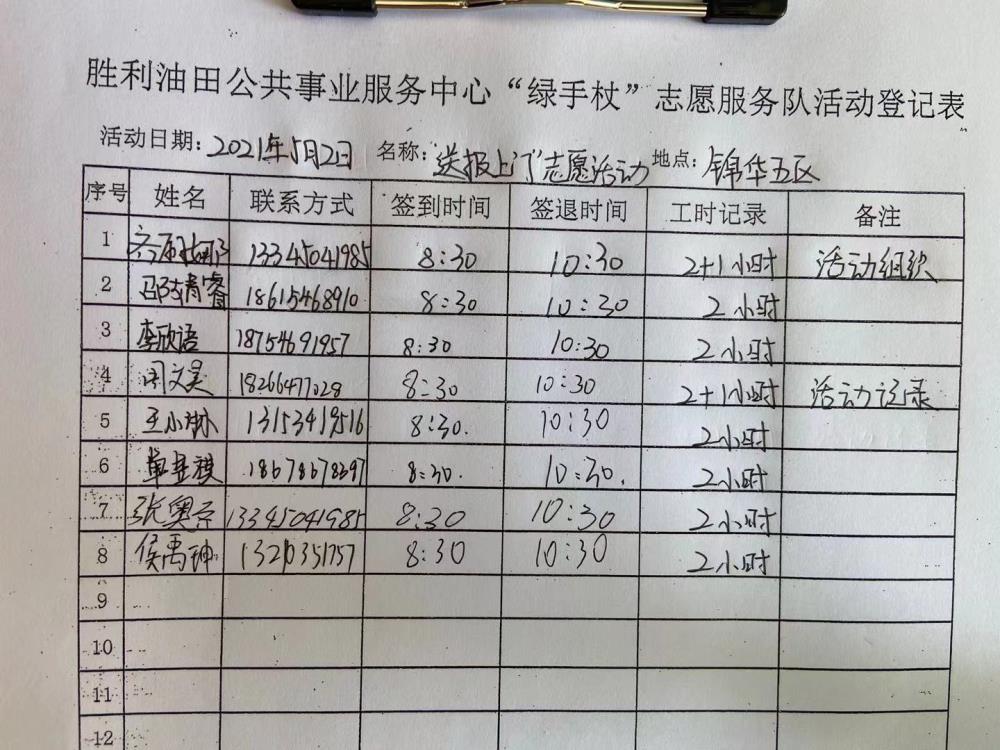 胜利油田公共事业服务中心“绿手杖”志愿服务队活动登记表
活动日期：2021年5月2日 名称：送报上门志愿活动 地点：锦华五区
序号 姓名 联系方式 签到时间 签退时间 工时记录 备注
1 13345041985 8:30 10:30 2+1小时 活动组织
2 邵靖睿 18615468910 8:30 10:30 2小时
3 李欣语 18754691957 8:30 10:30 2小时
4 闲文昊 18266477028 8:30 10:30 2+1小时 活动记录
5 王小琳 13153419516 8:30. 10:30 2小时
6 单显祺 18678678397 8:30. 10:30. 2小时
7 张奥京 13345041985 8:30 10:30 2小时
8 侯禹珅 13210351757 8:30 10:30 2小时
9
10
11
12